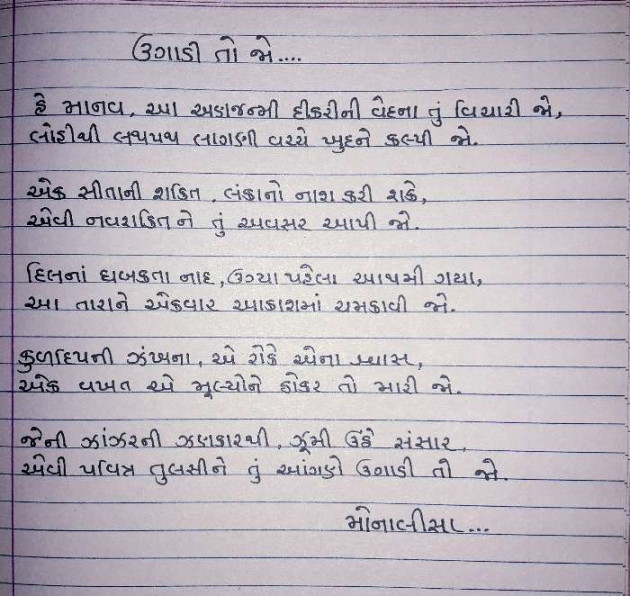 ઉગાડી તો જો....
હે માનવ, આ અણજન્મી દીકરીની વેદના તું વિચારી જો,
લોહીથી લથપથ લાગણી વચ્ચે ખુદને કલ્પી જો.
એક સીતાની શકિત, લંકાનો નાશ કરી શકે,
એવી નવશકિતને તું અવસર આપી જો.
દિલનાં ધબકતા નાદ, ઉગ્યા પહેલા આથમી ગયા,
આ તારાને એકવાર આકાશમાં ચમકાવી જો.
કુળદિપની ઝંખના, એ રોકે એના શ્વાસ,
એક વખત એ મૂલ્યોને ઠોકર તો મારી જો.
જેની ઝાંઝરની ઝણકારથી, ઝૂમી ઉઠે સંસાર,
એવી પવિત્ર તુલસીને તું આંગણે ઉગાડી તો જો.
મોનાલીસા...